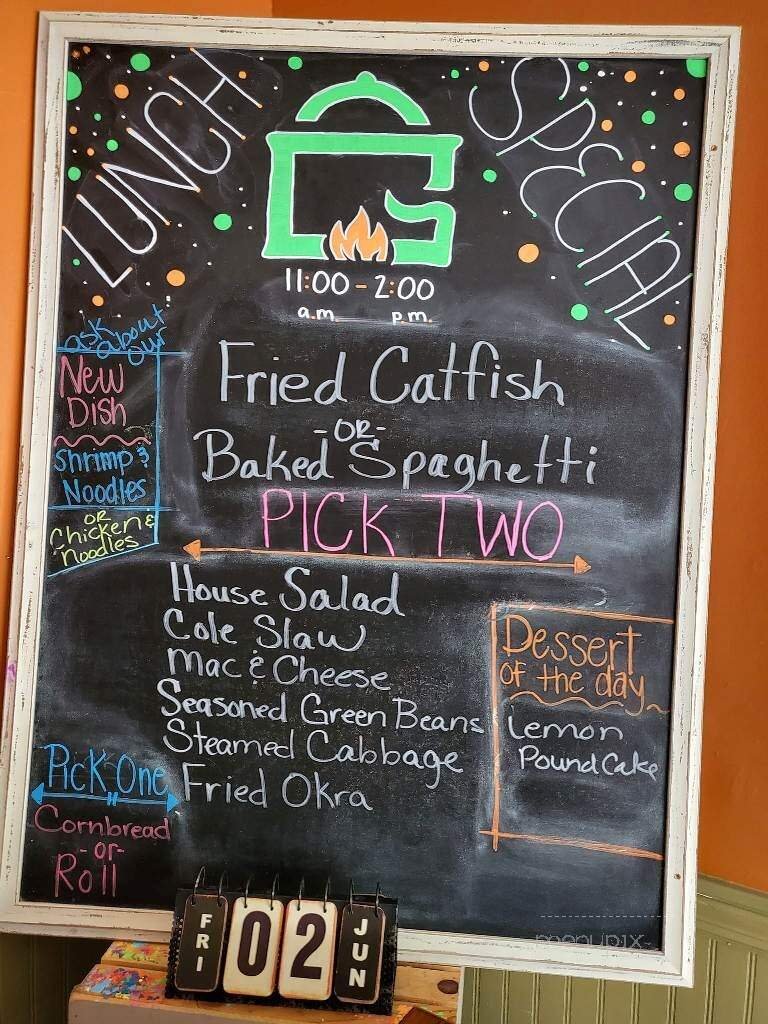 LUNCH
SPECIAL
11:00 - 2:00
a.m. p.m.
ask about
our
New
Dish
Shrimp &
Noodles
OR
Chicken &
Noodles
Fried Catfish
-OR-
Baked Spaghetti
PICK TWO
House Salad
Cole Slaw
Mac & Cheese
Seasoned Green Beans
Steamed Cabbage
Fried Okra
Dessert
of the day
Lemon
Pound Cake
Pick One
Cornbread
-or-
Roll
FRI 02 JUN
menupix